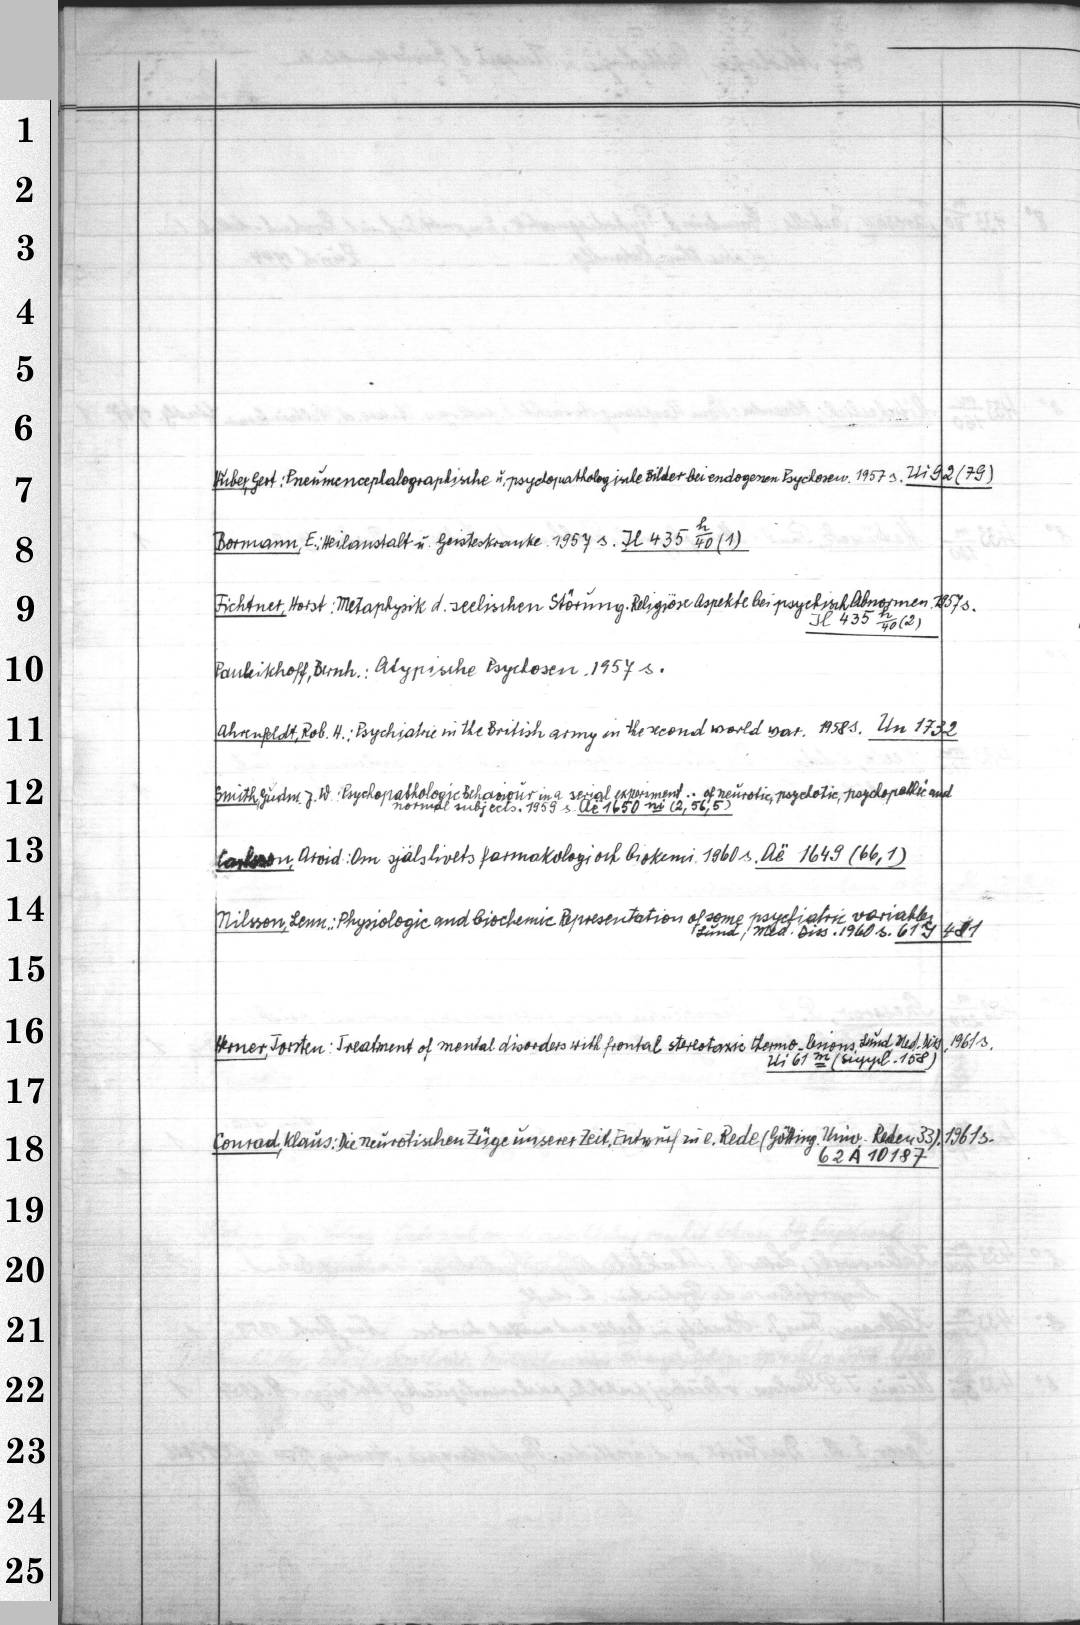 1
2
3
4
5
6
7 Huber, Gert: Pneumencephalographische u. psychopathologische Bilder bei endogenen Psychosen. 1957 s. Ui 92 (79)
8 Bormann, E.: Heilanstalt u. Geisteskranke. 1957 s. Jl 435 h/40 (1)
9 Fichtner, Horst: Metaphysik d. seelischen Störung. Religiöse Aspekte bei psychisch Abnormen. 1957 s.
Jl 435 h/40 (2)
10 Pauleikhoff, Bernh.: Atypische Psychosen. 1957 s.
11 Ahrenfeldt, Rob. H.: Psychiatrie in the British army in the second world war. 1958 s. Un 1732
12 Smith, Gudm. J. W.: Psychopathologic Behaviour in a serial experiment .. of neurotic, psychotic, psychopathic and
normal subjects. 1959 s. Aë 1650 ni (2, 56,5)
13 Carlsson, Arvid: Om själslivets farmakologi och biokemi. 1960 s. Aë 1649 (66,1)
14 Nilsson, Lenn.: Physiologic and biochemic Representation of some psychiatric variables
Lund, Med. Diss. 1960 s. 61 J 481
15
16 Herner, Torsten: Treatment of mental disorders with frontal stereotaxic thermo-lesions. Lund Med. Diss. 1961 s.
Ui 61 m (suppl. 158)
17
18 Conrad, Klaus: Die neurotischen Züge unserer Zeit. Entwurf zu e. Rede (Götting. Univ. Reden 33). 1961 s.
62 A 10187
19
20
21
22
23
24
25